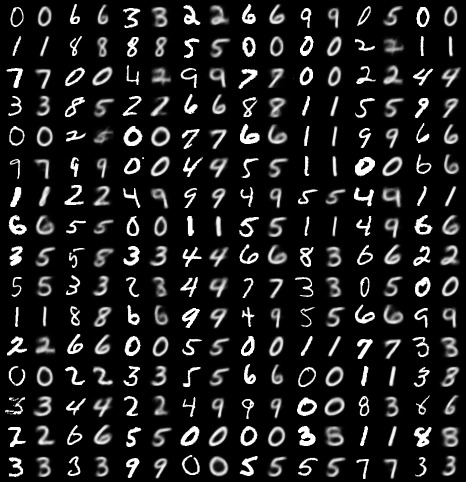 0 0 6 6 3 3 2 2 6 6 9 9 0 5 0 0
1 1 8 8 8 8 5 5 0 0 0 0 2 2 1 1
7 7 0 0 4 2 9 9 7 7 0 0 2 2 4 4
3 3 8 5 2 2 6 6 8 8 1 1 5 5 9 9
0 0 2 0 0 7 7 6 6 1 1 9 9 6 6
9 7 9 9 0 0 4 4 5 5 1 1 0 0 6 6
1 1 2 2 4 9 9 9 4 9 5 5 4 9 1 1
6 6 5 5 0 0 1 1 5 5 1 1 4 9 6 6
3 5 5 8 3 3 4 4 6 6 8 3 6 6 2 2
5 5 3 3 2 3 4 4 7 7 3 3 0 5 0 0
1 1 8 8 6 6 9 9 4 9 5 5 6 6 9 9
2 2 6 6 0 0 5 5 0 0 1 1 9 7 3 3
0 0 2 2 3 3 5 5 6 6 0 0 1 1 3 3
3 3 4 4 2 2 4 9 9 9 0 0 8 3 8 6
2 2 6 6 5 5 0 0 0 0 3 3 1 1 8 8
3 3 3 3 9 9 0 0 5 5 5 5 7 7 3 3